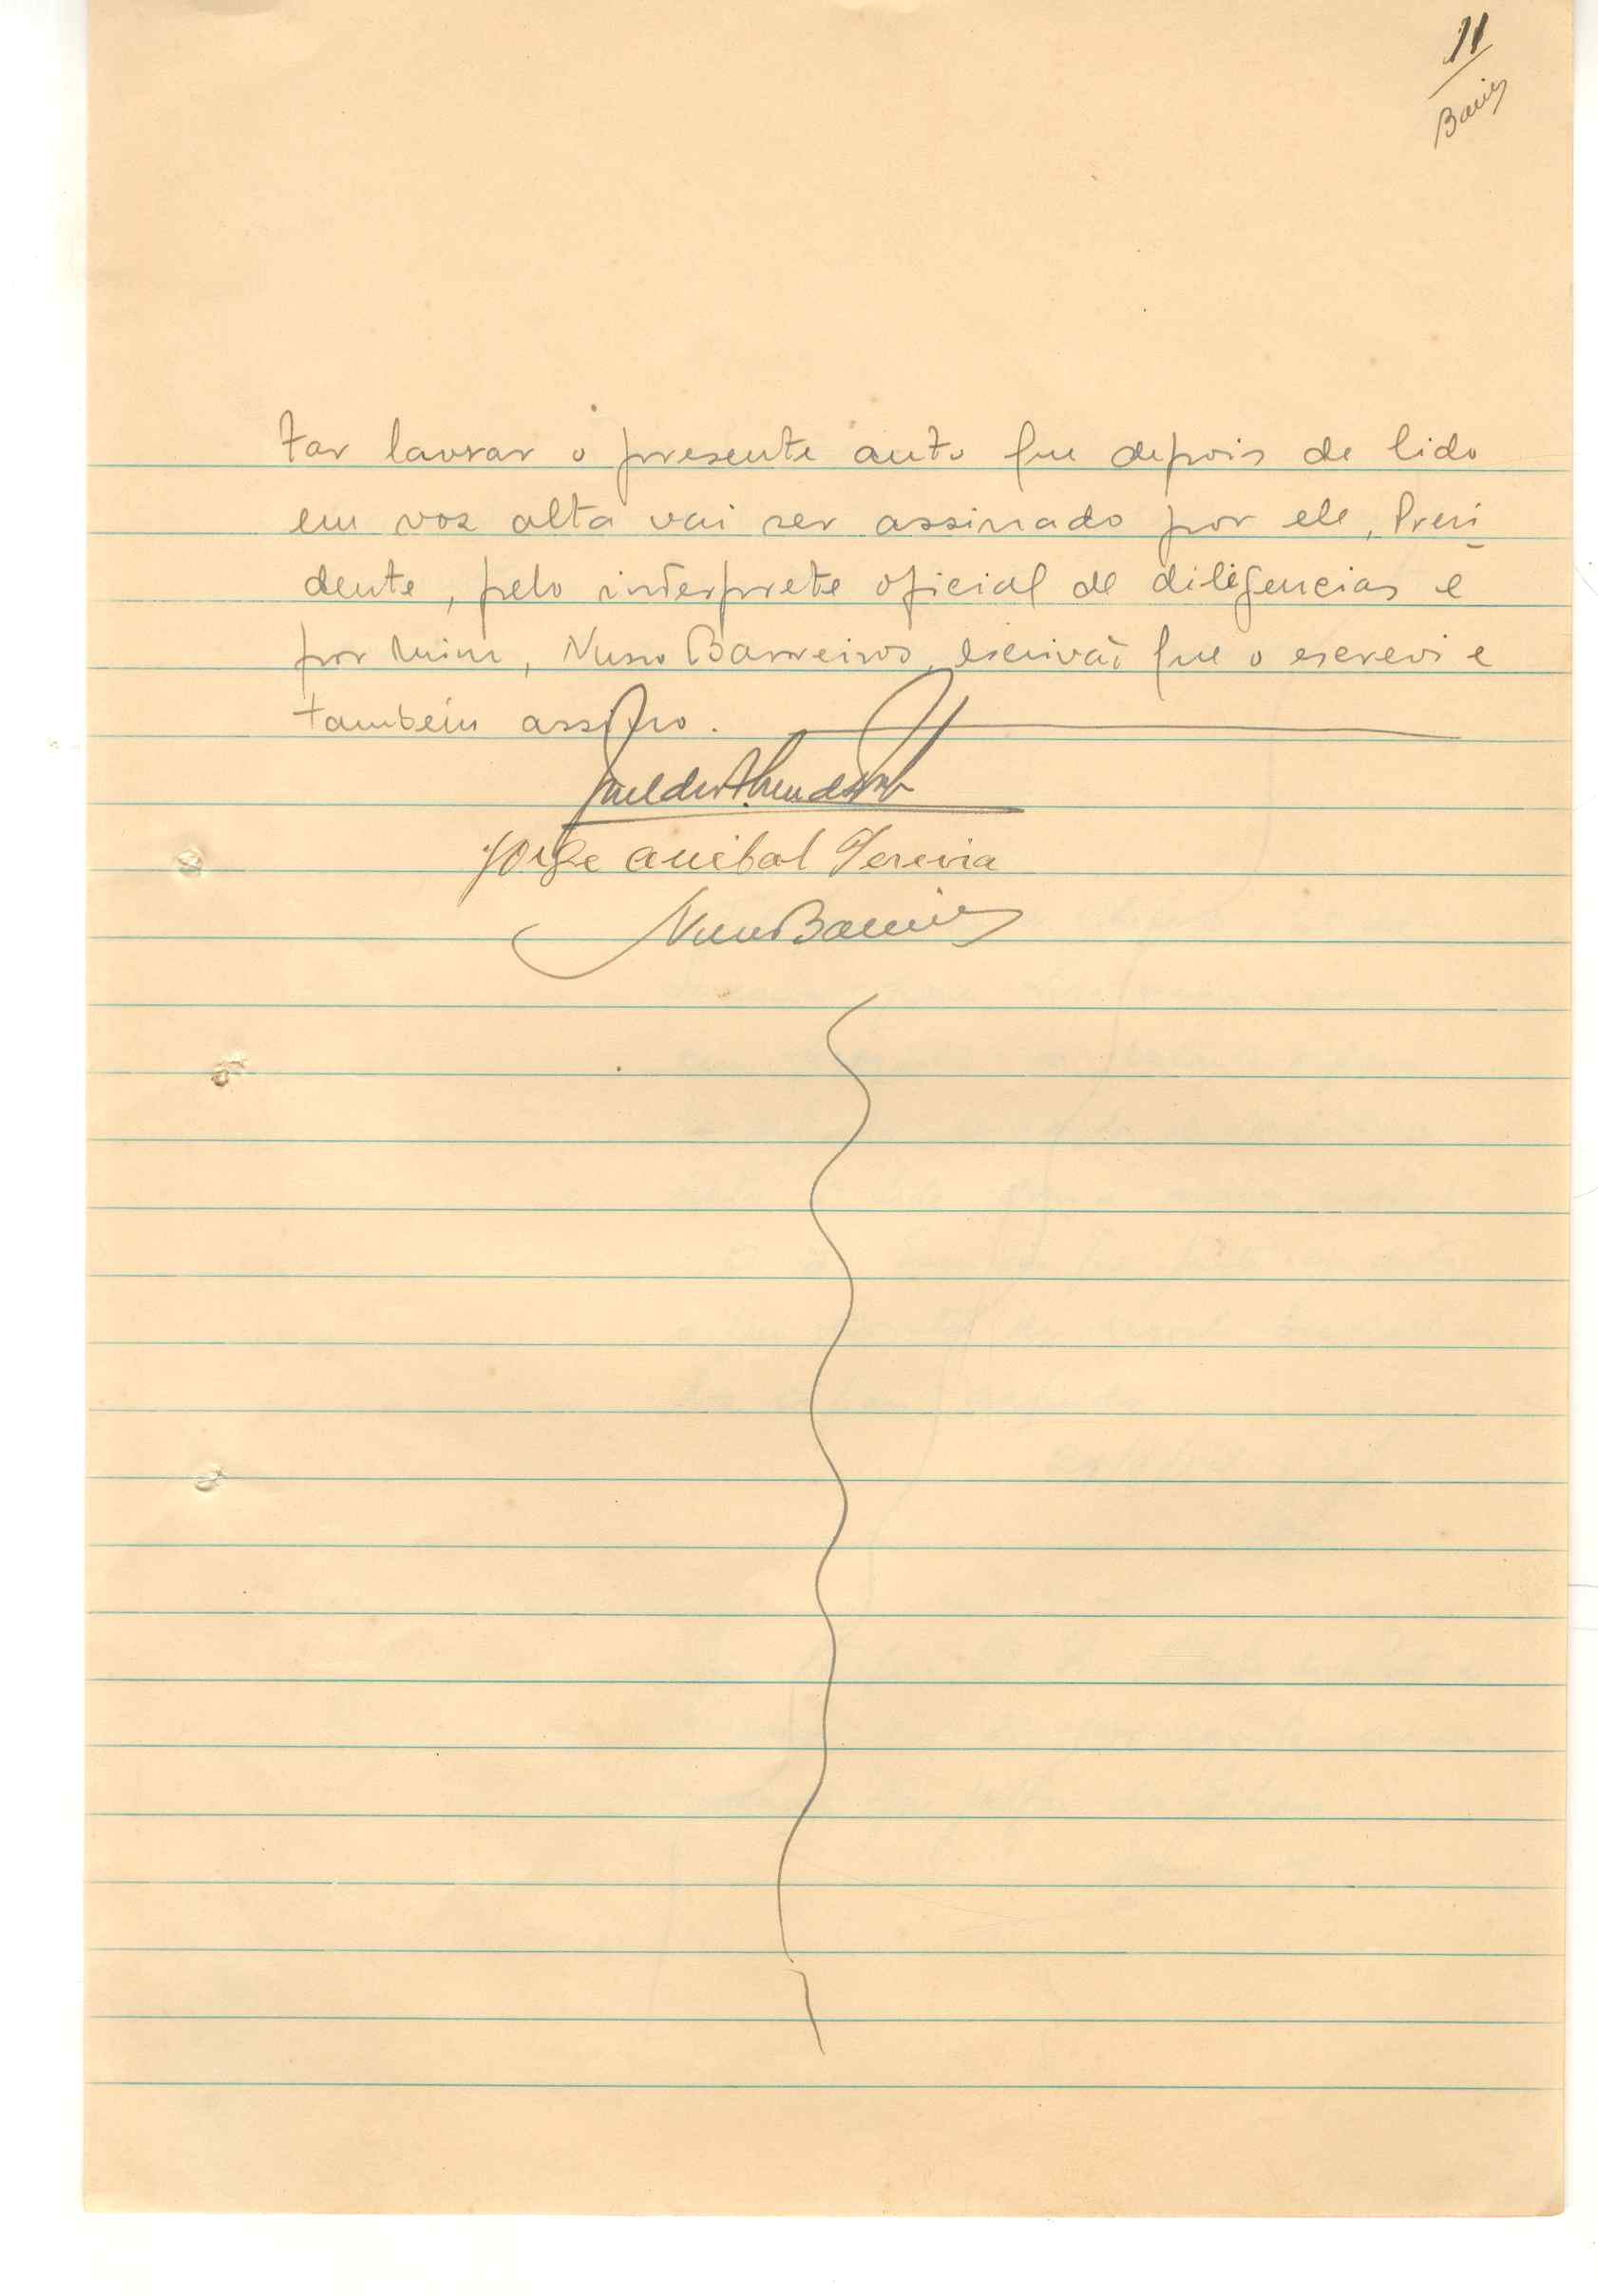 11
tar lavrar o presente auto que depois de lido
em voz alta vai ser assinado por ele, Presi-
dente, pelo interprete oficial de diligencias e
por mim, Nuno Barreiros, escrivão que o escrevi e
também assino.
Jorge Anibal Pereira
Nuno Barreiros